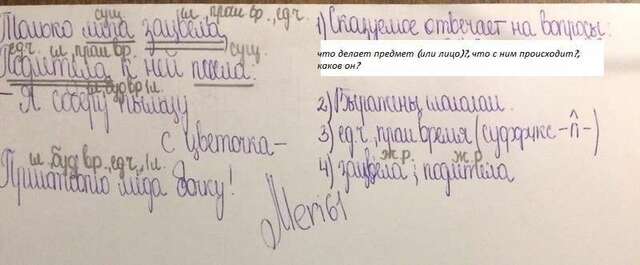 сущ. гл прош вр., ед.ч.
Только липа зацвела,
ед.ч. гл, прош вр. сущ.
Подлетела к ней пчела:
гл, буд вр, 1л.
- Я соберу пыльцу
с цветочка -
гл. буд вр., ед.ч., 1л.
Приготовлю мёда бочку!
Meri61
1) Сказуемое отвечает на вопросы:
что делает предмет (или лицо)?, что с ним происходит?,
каков он?
2) Выражены глаголом.
3) ед.ч., прош время (суффикс -л-)
ж.р. ж.р.
4) зацвела ; подлетела